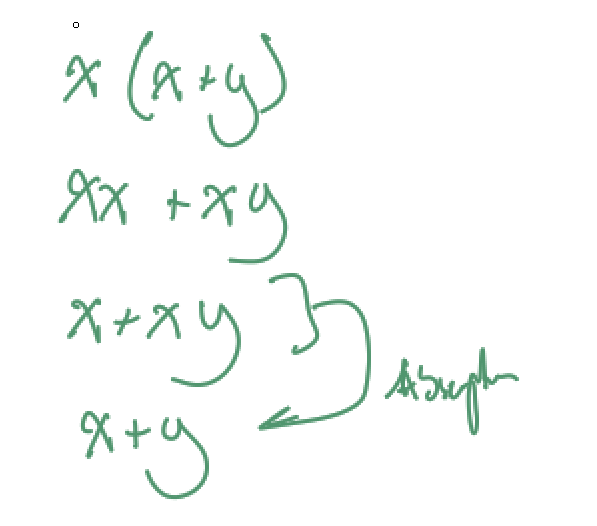 x (x+y)
xx + xy
x+xy
x+y
Absorption